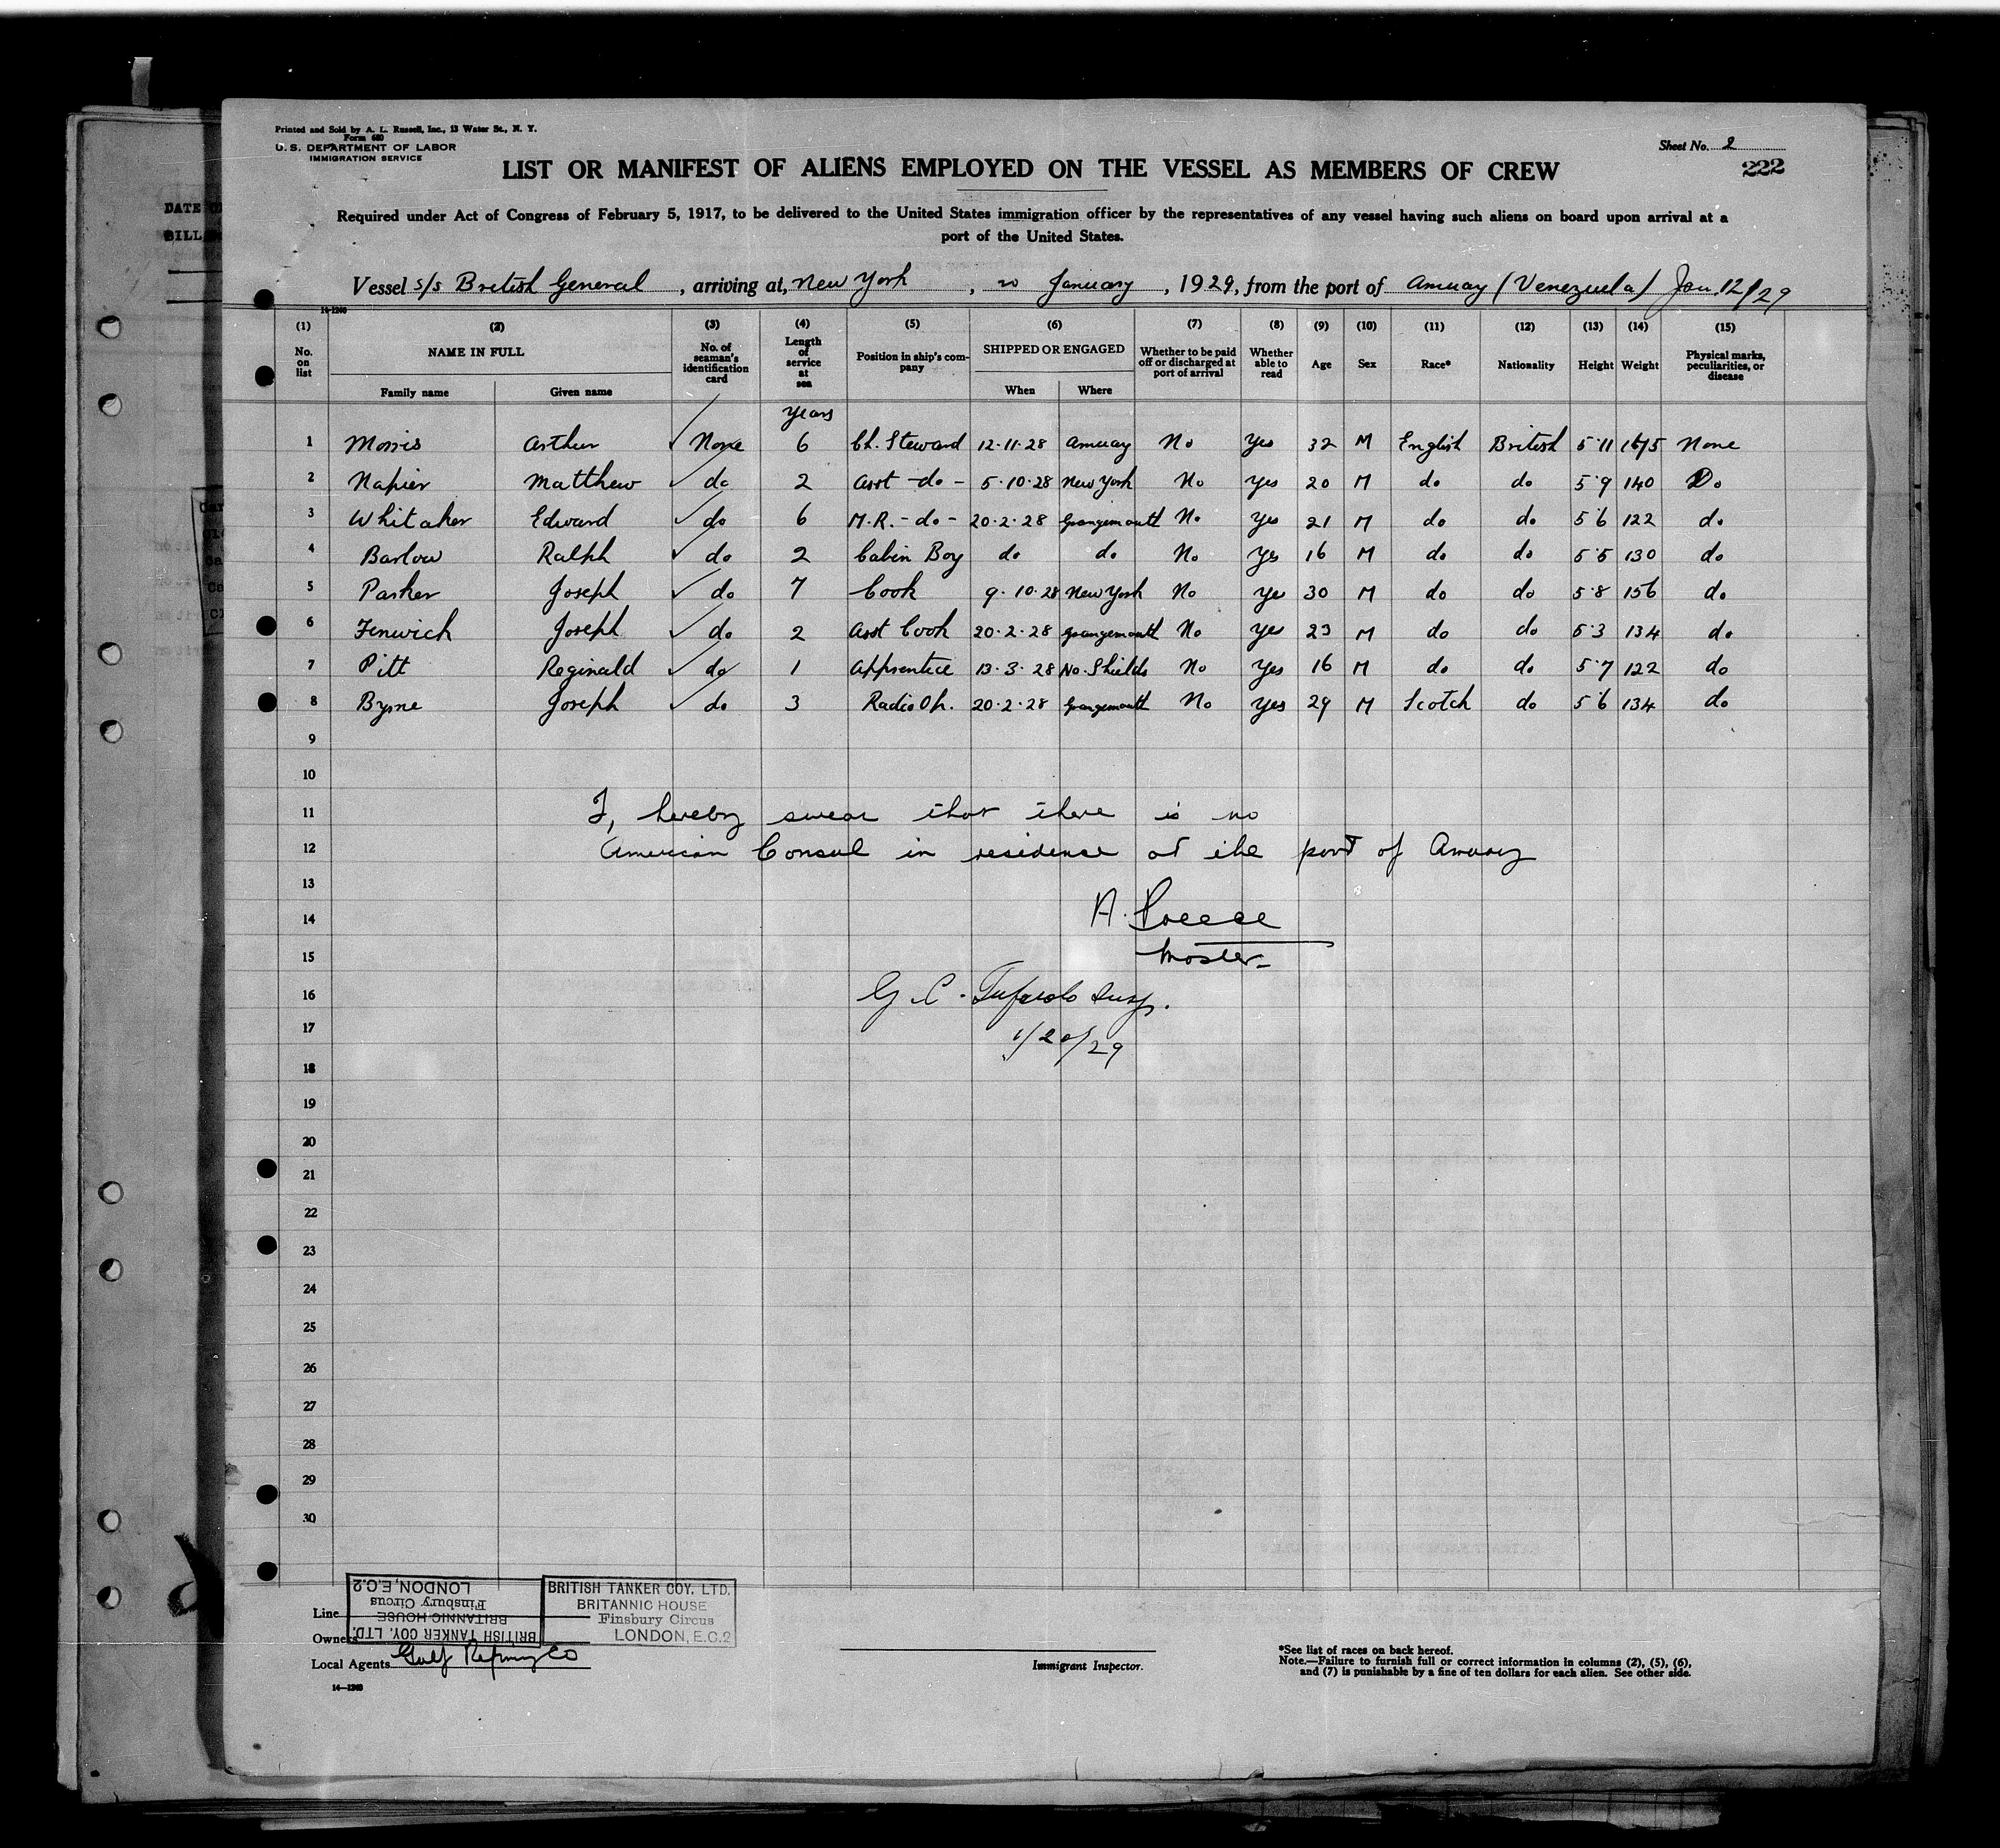 Printed and Sold by A. L. Russell, Inc., 13 Water St., N. Y.
Form 680
U. S. DEPARTMENT OF LABOR
IMMIGRATION SERVICE
Sheet No. 2
222
LIST OR MANIFEST OF ALIENS EMPLOYED ON THE VESSEL AS MEMBERS OF CREW
Required under Act of Congress of February 5, 1917, to be delivered to the United States immigration officer by the representatives of any vessel having such aliens on board upon arrival at a
port of the United States.
Vessel s/s British General, arriving at, New York, 20 January, 1929, from the port of Amuay (Venezuela) Jan. 12/29
14-1240
(1) (2) (3) (4) (5) (6) (7) (8) (9) (10) (11) (12) (13) (14) (15)
No. on list NAME IN FULL Family name Given name No. of seaman's identification card Length of service at sea Position in ship's company SHIPPED OR ENGAGED When Where Whether to be paid off or discharged at port of arrival Whether able to read Age Sex Race* Nationality Height Weight Physical marks, peculiarities, or disease
years
1 Morris Arthur None 6 Ch. Steward 12-11-28 Amuay No Yes 32 M English British 5'11 165 None
2 Napier Matthew do 2 Asst -do- 5-10-28 New York No Yes 20 M do do 5'9 140 Do
3 Whitaker Edward do 6 M.R. -do- 20-2-28 Grangemouth No Yes 21 M do do 5'6 122 do
4 Barlow Ralph do 2 Cabin Boy do do No Yes 16 M do do 5'5 130 do
5 Parker Joseph do 7 Cook 9-10-28 New York No Yes 30 M do do 5'8 156 do
6 Fenwick Joseph do 2 Asst Cook 20-2-28 Grangemouth No Yes 23 M do do 5'3 134 do
7 Pitt Reginald do 1 Apprentice 13-3-28 No. Shields No Yes 16 M do do 5'7 122 do
8 Byrne Joseph do 3 Radio Op. 20-2-28 Grangemouth No Yes 29 M Scotch do 5'6 134 do
9
10
11 I, hereby swear that there is no
12 American Consul in residence at the port of Amuay
13
14 A. Preece
15 Master
16 G. C. Insp.
17 1/20/29
18
19
20
21
22
23
24
25
26
27
28
29
30
BRITISH TANKER COY. LTD.
BRITANNIC HOUSE
Finsbury Circus
LONDON, E.C.2
BRITISH TANKER COY. LTD.
BRITANNIC HOUSE
Finsbury Circus
LONDON, E.C.2
Line
Owners
Local Agents Gulf Refining Co
14-1240
Immigrant Inspector.
*See list of races on back hereof.
Note.—Failure to furnish full or correct information in columns (2), (5), (6),
and (7) is punishable by a fine of ten dollars for each alien. See other side.